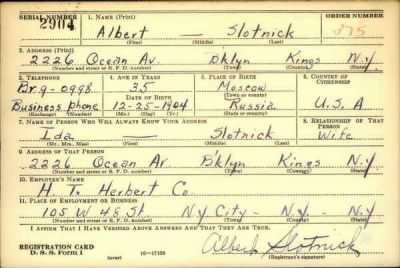 SERIAL NUMBER 1. NAME (Print) ORDER NUMBER
2904 Albert — Slotnick 275
(First) (Middle) (Last)
2. ADDRESS (Print)
2226 Ocean Av. Bklyn Kings N.Y.
(Number and street or R. F. D. number) (Town) (County) (State)
3. TELEPHONE 4. AGE IN YEARS 5. PLACE OF BIRTH 6. COUNTRY OF CITIZENSHIP
Br. 9-0998 35 Moscow
DATE OF BIRTH (Town or county)
Business phone 12-25-1904 Russia U.S.A
(Exchange) (Number) (Mo.) (Day) (Yr.) (State or country)
7. NAME OF PERSON WHO WILL ALWAYS KNOW YOUR ADDRESS 8. RELATIONSHIP OF THAT PERSON
Ida — Slotnick Wife
(Mr., Mrs., Miss) (First) (Middle) (Last)
9. ADDRESS OF THAT PERSON
2226 Ocean Av. B'klyn Kings N.Y
(Number and street or R. F. D. number) (Town) (County) (State)
10. EMPLOYER'S NAME
H. T. Herbert Co.
11. PLACE OF EMPLOYMENT OR BUSINESS
105 W 48 St N.Y City - N.Y. - N.Y
(Number and street or R. F. D. number) (Town) (County) (State)
I AFFIRM THAT I HAVE VERIFIED ABOVE ANSWERS AND THAT THEY ARE TRUE.
Albert Slotnick
REGISTRATION CARD
D. S. S. Form 1 (over) (Registrant's signature)